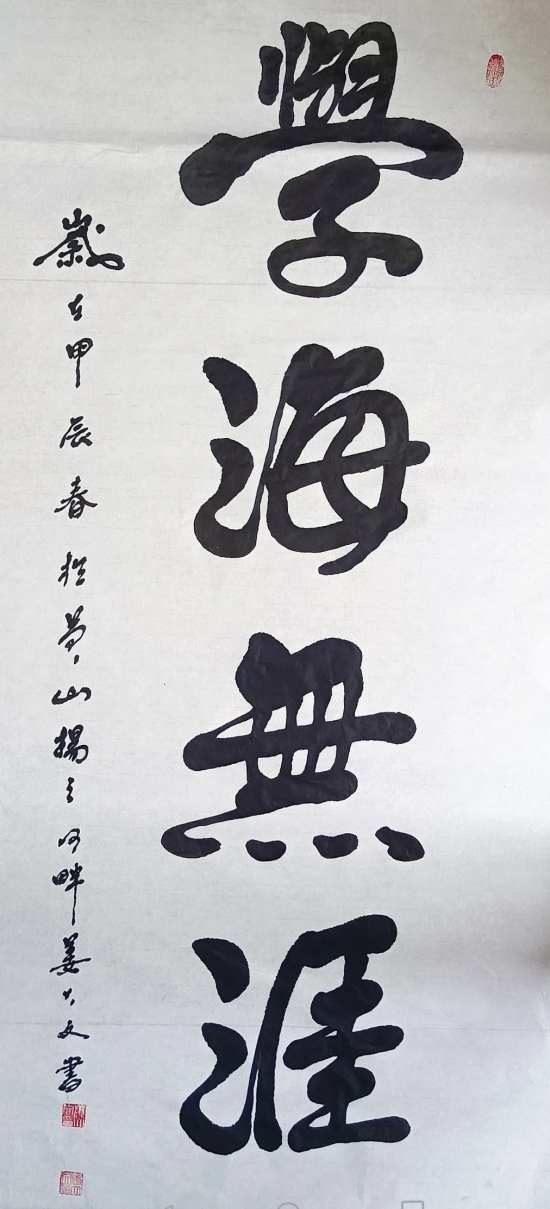 學海無涯
歲在甲辰春於萬山楊之河畔姜大文書